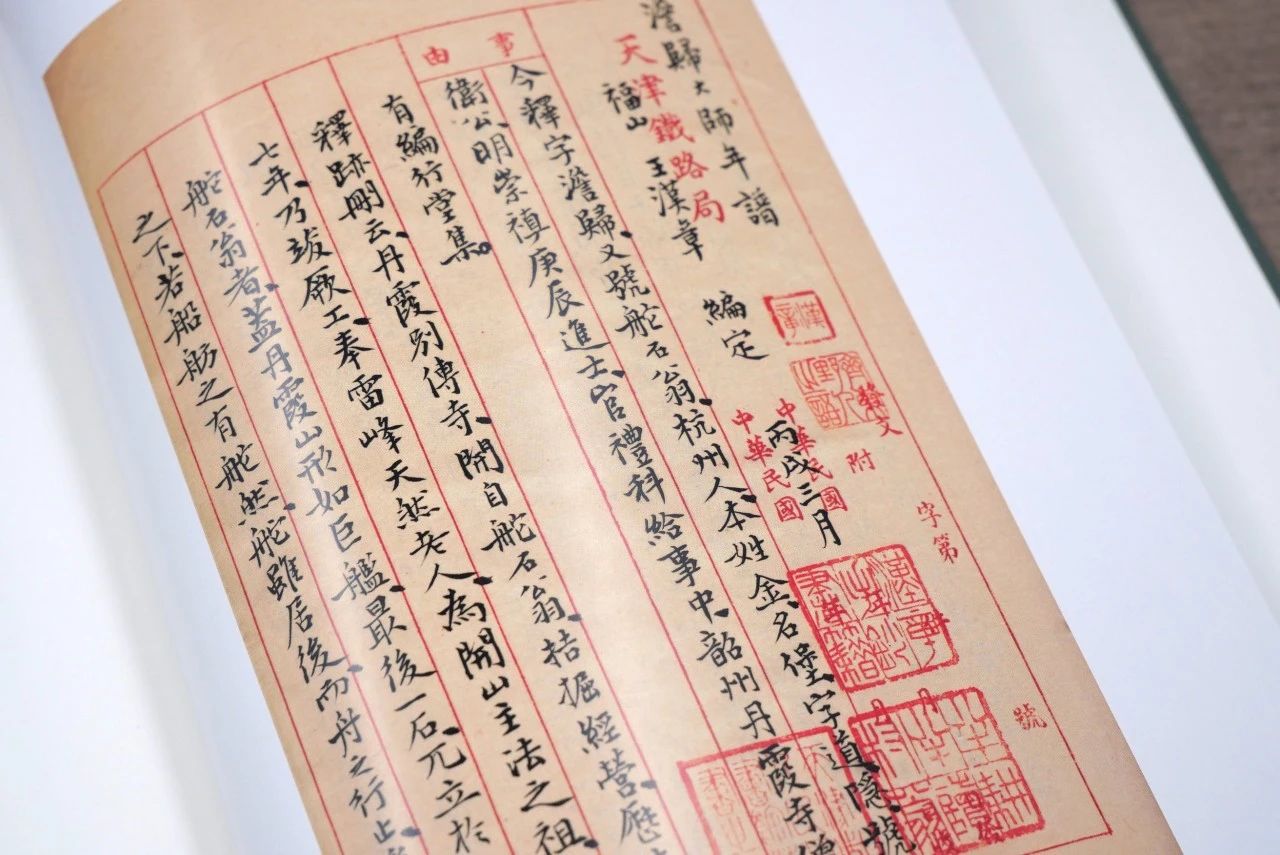 字第 號
發文 附
澹歸大師年譜
天津鐵路局
福山 王漢章 編定 丙戌三月
漢章
中華民國
中華民國
事由
今釋字澹歸、又號舵石翁、杭州人、本姓金、名堡、字道隱、號
衛公、明崇禎庚辰進士、官禮科給事中、韶州丹霞寺僧
有編行堂集。
釋跡刪云、丹霞別傳寺、開自舵石翁、拮掘經營、歷
七年、乃竣厥工、奉雷峰天然老人、為開山主法之祖、
舵石翁者、蓋丹霞山形如巨艦、最後一石、兀立於
之下、若船舫之有舵然、舵雖居後、而舟之行止、